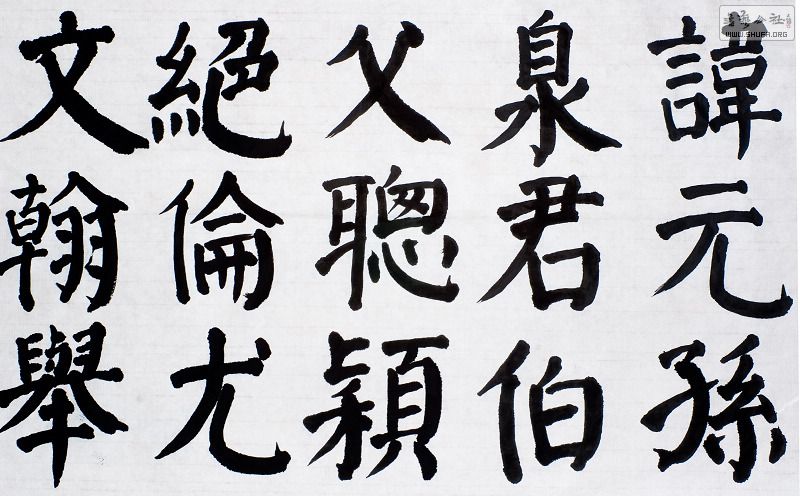 諱元孫
泉君伯
父聰穎
絕倫尤
文翰舉
書藝公社
WWW.SHUFA.ORG